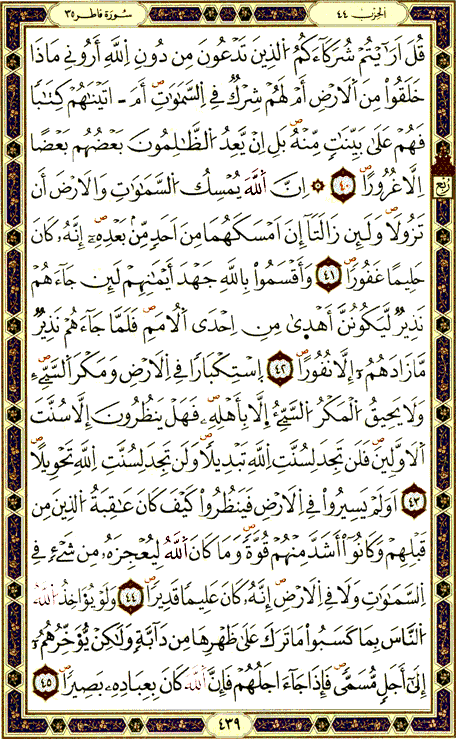 الحزب ٤٤
سُورَة فَاطِر ٣٥
قُلَ اَرَآيْتُمْ شُرَكَآءَكُمُ الذِينَ تَدْعُونَ مِن دُونِ اِللَّهِ أَرُونِي مَاذَا
خَلَقُواْ مِنَ الَارْضِ أَمْ لَهُمْ شِرْكٌ فِي السَّمَٰوَٰتِ أَمَ اٰتَيْنَٰهُمْ كِتَٰبًا
فَهُمْ عَلَىٰ بَيِّنَٰتٍ مِّنْهُ بَلِ اِنْ يَّعِدُ الظَّٰلِمُونَ بَعْضُهُم بَعْضًا
اِلَّا غُرُورًا ٤٠ ۞ اِنَّ اَللَّهَ يُمْسِكُ السَّمَٰوَٰتِ وَالَارْضَ أَن
تَزُولَا وَلَئِن زَالَتَآ إِنَ اَمْسَكَهُمَا مِنَ اَحَدٍ مِّنۢ بَعْدِهِۦٓ إِنَّهُۥ كَانَ
حَلِيمًا غَفُورًا ٤١ وَأَقْسَمُواْ بِاللَّهِ جَهْدَ أَيْمَٰنِهِمْ لَئِن جَآءَهُمْ
نَذِيرٌ لَّيَكُونُنَّ أَهْدَىٰ مِنِ اِحْدَى الُامَمِ فَلَمَّا جَآءَهُمْ نَذِيرٌ
مَّا زَادَهُمُۥٓ إِلَّا نُفُورًا ٤٢ اِسْتِكْبَارًا فِي الَارْضِ وَمَكْرَ السَّيِّئِ
وَلَا يَحِيقُ الْمَكْرُ السَّيِّئُ إِلَّا بِأَهْلِهِۦ فَهَلْ يَنظُرُونَ إِلَّا سُنَّتَ
الَاوَّلِينَ فَلَن تَجِدَ لِسُنَّتِ اِللَّهِ تَبْدِيلًا وَلَن تَجِدَ لِسُنَّتِ اِللَّهِ تَحْوِيلًا
٤٣ اَوَلَمْ يَسِيرُواْ فِي الَارْضِ فَيَنظُرُواْ كَيْفَ كَانَ عَٰقِبَةُ الذِينَ مِن
قَبْلِهِمْ وَكَانُوٓاْ أَشَدَّ مِنْهُمْ قُوَّةً وَمَا كَانَ اَللَّهُ لِيُعْجِزَهُۥ مِن شَيْءٍ فِي
اِلسَّمَٰوَٰتِ وَلَا فِي الَارْضِ إِنَّهُۥ كَانَ عَلِيمًا قَدِيرًا ٤٤ وَلَوْ يُوَاخِذُ اُللَّهُ
النَّاسَ بِمَا كَسَبُواْ مَا تَرَكَ عَلَىٰ ظَهْرِهَا مِن دَآبَّةٍ وَلَٰكِنْ يُّوَخِّرُهُمُۥٓ
إِلَىٰٓ أَجَلٍ مُّسَمًّى فَإِذَا جَآءَ اجَلُهُمْ فَإِنَّ اَللَّهَ كَانَ بِعِبَادِهِۦ بَصِيرًا ٤٥
ربع
٤٣٩